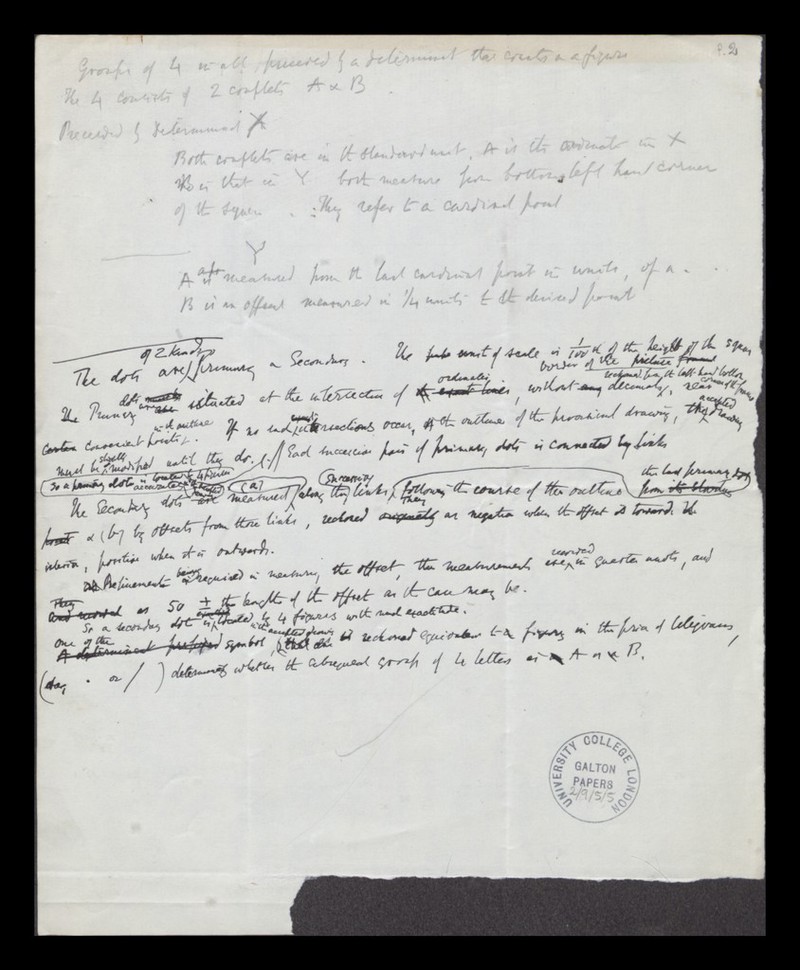 P.2
Groups of 4 in all, preceded by a determinant that counts as a figure
The 4 consists of 2 couplets A & B.
Preceded by determinant X
Both couplets are in the standard unit. A is the ordinate in X
B is that in Y both measure from bottom left hand corner
of the square. ∴ They refer to a cardinal point
Y
A measured from the last cardinal point in units, of a.
B is an offset measured in 1/4 units to the desired point
of 2 kinds
The dots are primary & Secondary. The unit of scale is 1/100 of the height of the square
border of the picture
ordinates
The Primary dots are situated at the intersection of without decimals, near
certain convenient points. If no such intersections occur, the outline of the provisional drawing,
must be slightly modified until they do. // Each successive pair of primary dots is connected by links
So a primary dot is located accurately by 4 figures
successively the last primary dot
The Secondary dots are measured (a) along the links, following the course of the outline from
& (b) by offsets from those links, reckoned as negative when the offset is towards the
interior, positive when it is outwards.
Refinement being required in measuring the offset, the measurements are recorded in quarter units, and
They as 50 ± the length of the offset as the case may be.
So a secondary dot is located by 4 figures with much exactitude.
one of the symbol, is reckoned equivalent to a figure in the price of telegrams,
(say . or / ) determines whether the subsequent group of 4 letters is A or B.
UNIVERSITY COLLEGE LONDON
GALTON
PAPERS
2/9/5/5